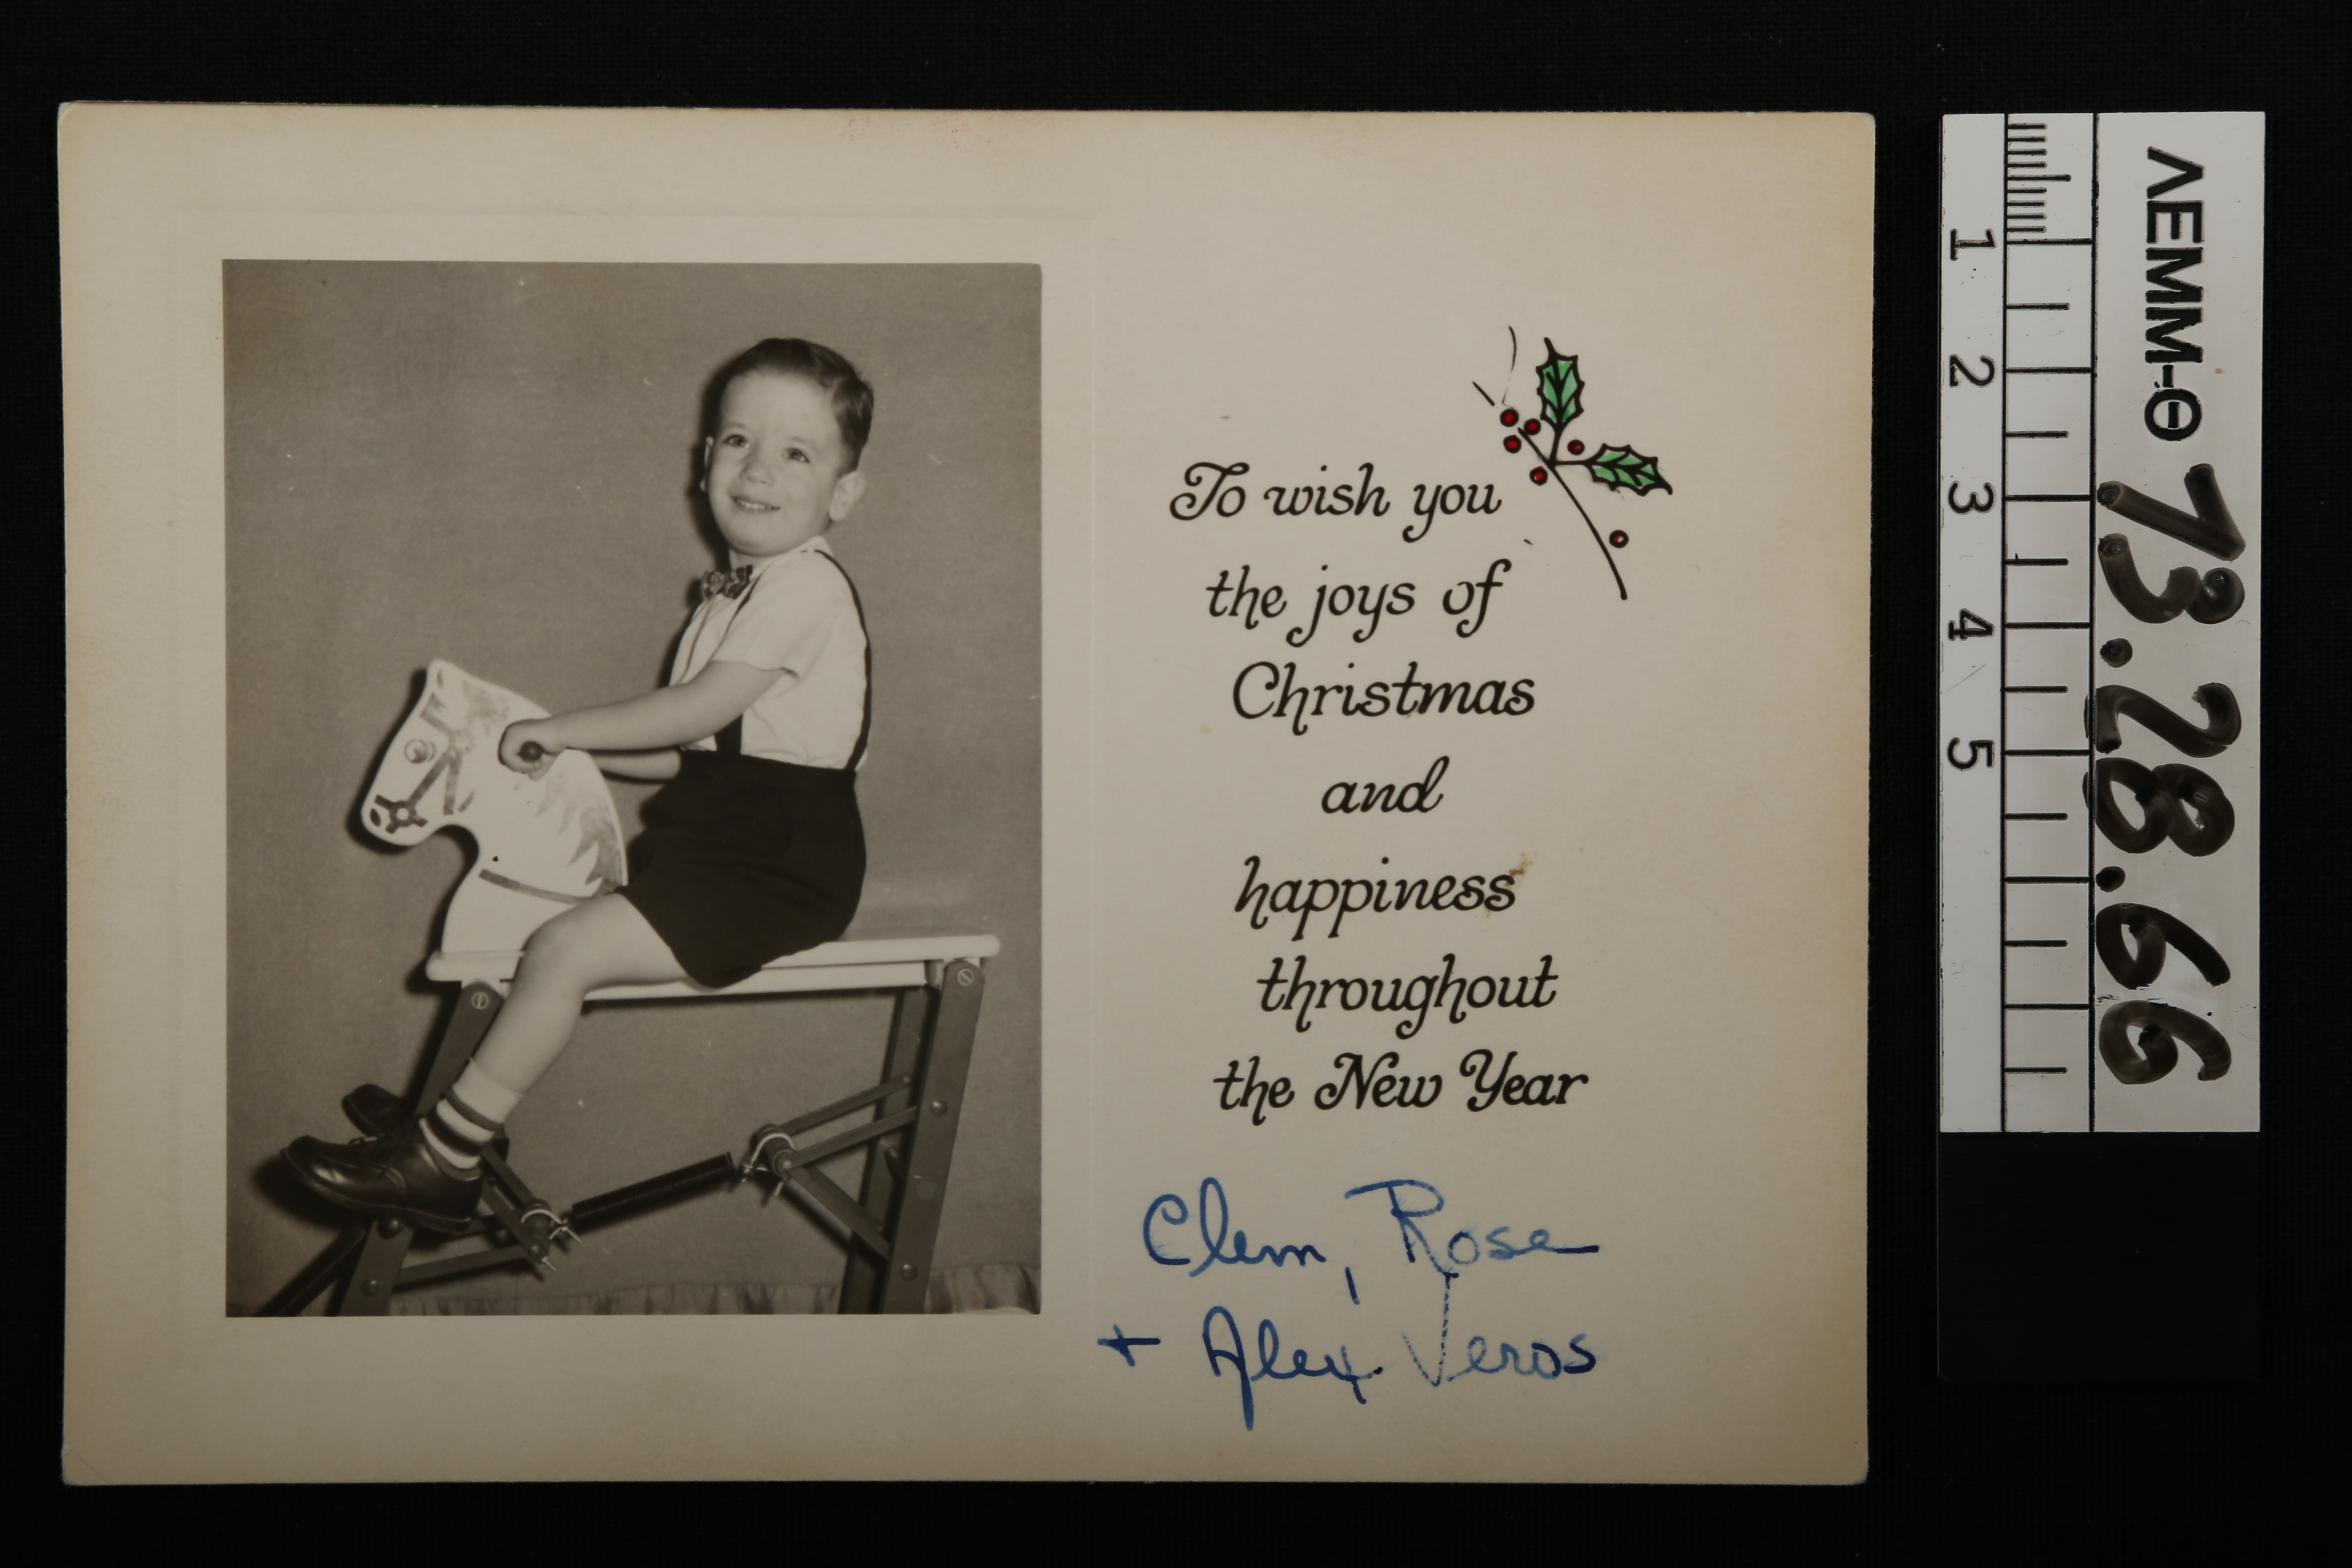 To wish you
the joys of
Christmas
and
happiness
throughout
the New Year
Clem, Rose
+ Alex Veros
ΛΕΜΜ-Θ 13.28.66
1
2
3
4
5